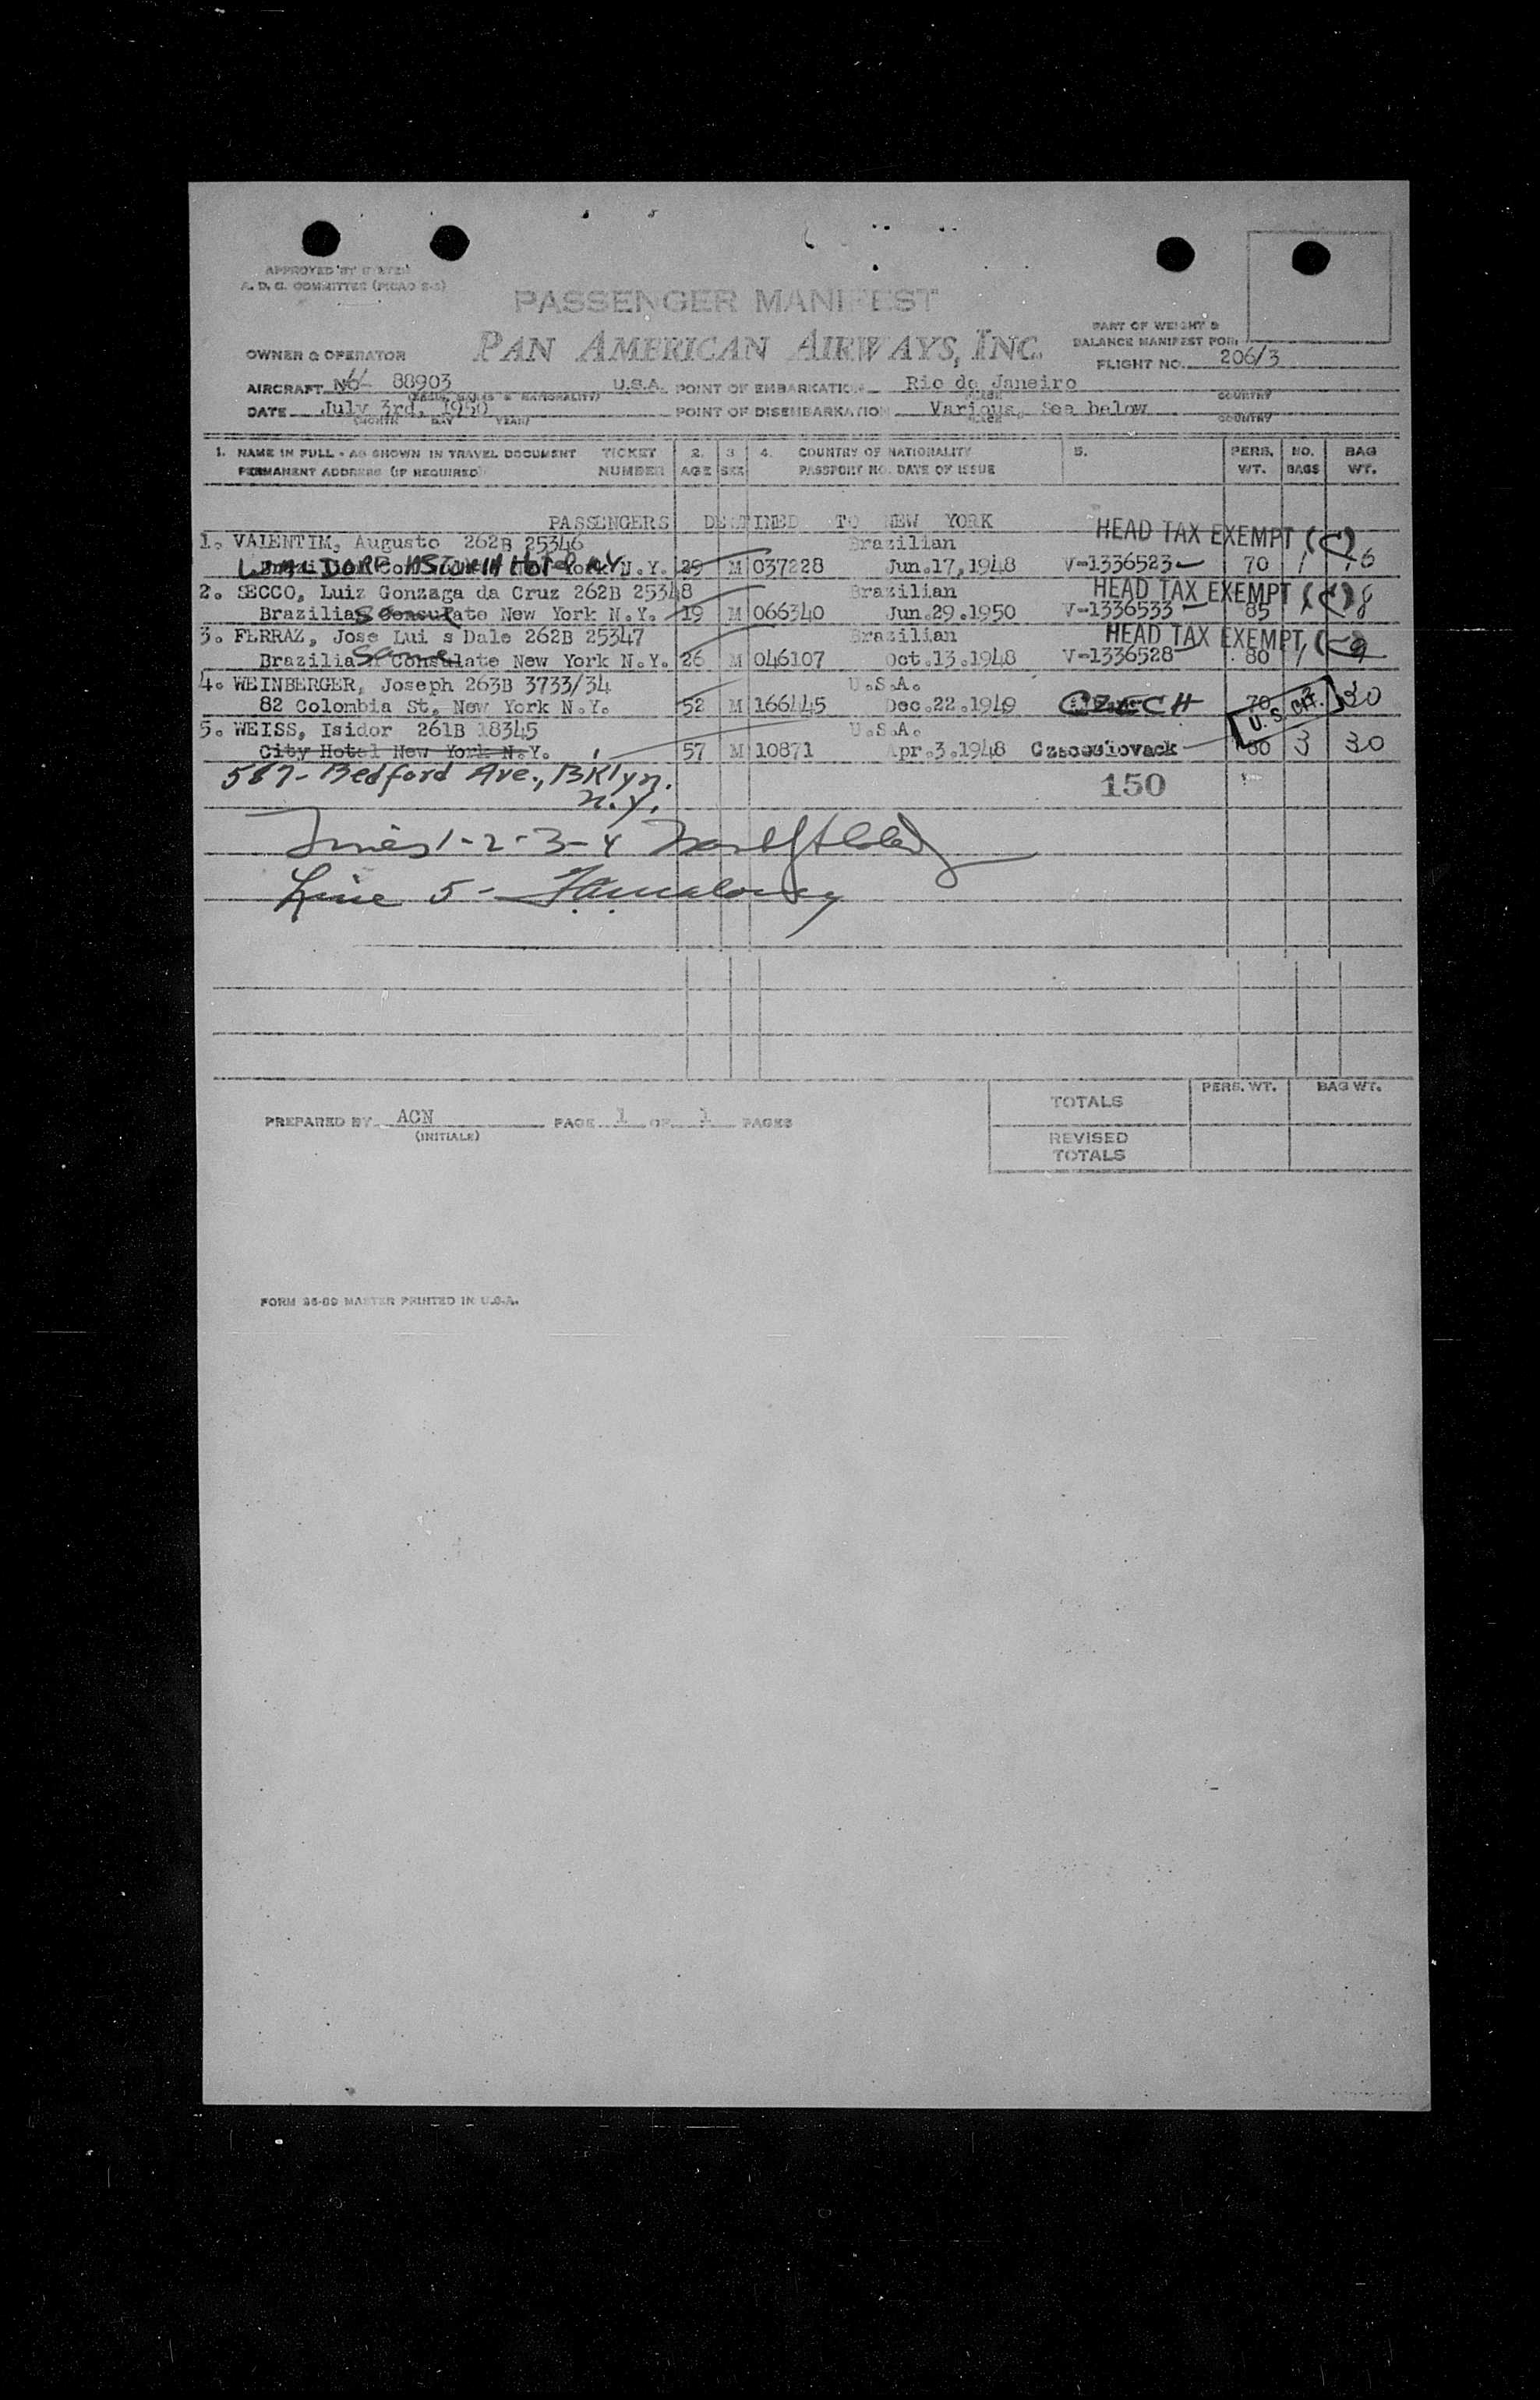 APPROVED BY
A. D. G. COMMITTEE (PICAO S-3)
PASSENGER MANIFEST
PAN AMERICAN AIRWAYS, INC.
PART OF WEIGHT &
BALANCE MANIFEST FOR:
OWNER & OPERATOR
FLIGHT NO. 206/3
AIRCRAFT 88903 U.S.A. POINT OF EMBARKATION Rio de Janeiro
PLACE COUNTRY
DATE July 3rd, 1950 POINT OF DISEMBARKATION Various, See below
(MONTH DAY YEAR) PLACE COUNTRY
1. NAME IN FULL - AS SHOWN IN TRAVEL DOCUMENT TICKET 2. 3 4. COUNTRY OF NATIONALITY 5. PERS. NO. BAG
PERMANENT ADDRESS (IF REQUIRED) NUMBER AGE SEX PASSPORT NO. DATE OF ISSUE WT. BAGS WT.
PASSENGERS DESTINED TO NEW YORK
HEAD TAX EXEMPT
1. VALENTIM, Augusto 262B 25346 Brazilian
WALDORF HOTEL N.Y. 29 M 037228 Jun.17,1948 V-1336523 70 1
HEAD TAX EXEMPT
2. SECCO, Luiz Gonzaga da Cruz 262B 25348 Brazilian
Brazilian Consulate New York N.Y. Same 19 M 066340 Jun.29.1950 V-1336533 85 1 8
HEAD TAX EXEMPT
3. FERRAZ, Jose Lui s Dale 262B 25347 Brazilian
Brazilian Consulate New York N.Y. Same 26 M 046107 Oct.13.1948 V-1336528 80 1 9
4. WEINBERGER, Joseph 263B 3733/34 U.S.A.
82 Colombia St. New York N.Y. 52 M 166445 Dec.22.1949 CZECH 70 2 30
U.S. CIT.
5. WEISS, Isidor 261B 18345 U.S.A.
City Hotel New York N.Y. 57 M 10871 Apr.3.1948 Czscoslovack 80 3 30
567- Bedford Ave., BKlyn.
N.Y.
150
Lines 1-2-3-4
Line 5-
PREPARED BY ACN PAGE 1 OF 1 PAGES
(INITIALS)
PERS. WT. BAG WT.
TOTALS
REVISED
TOTALS
FORM 96-89 MASTER PRINTED IN U.S.A.